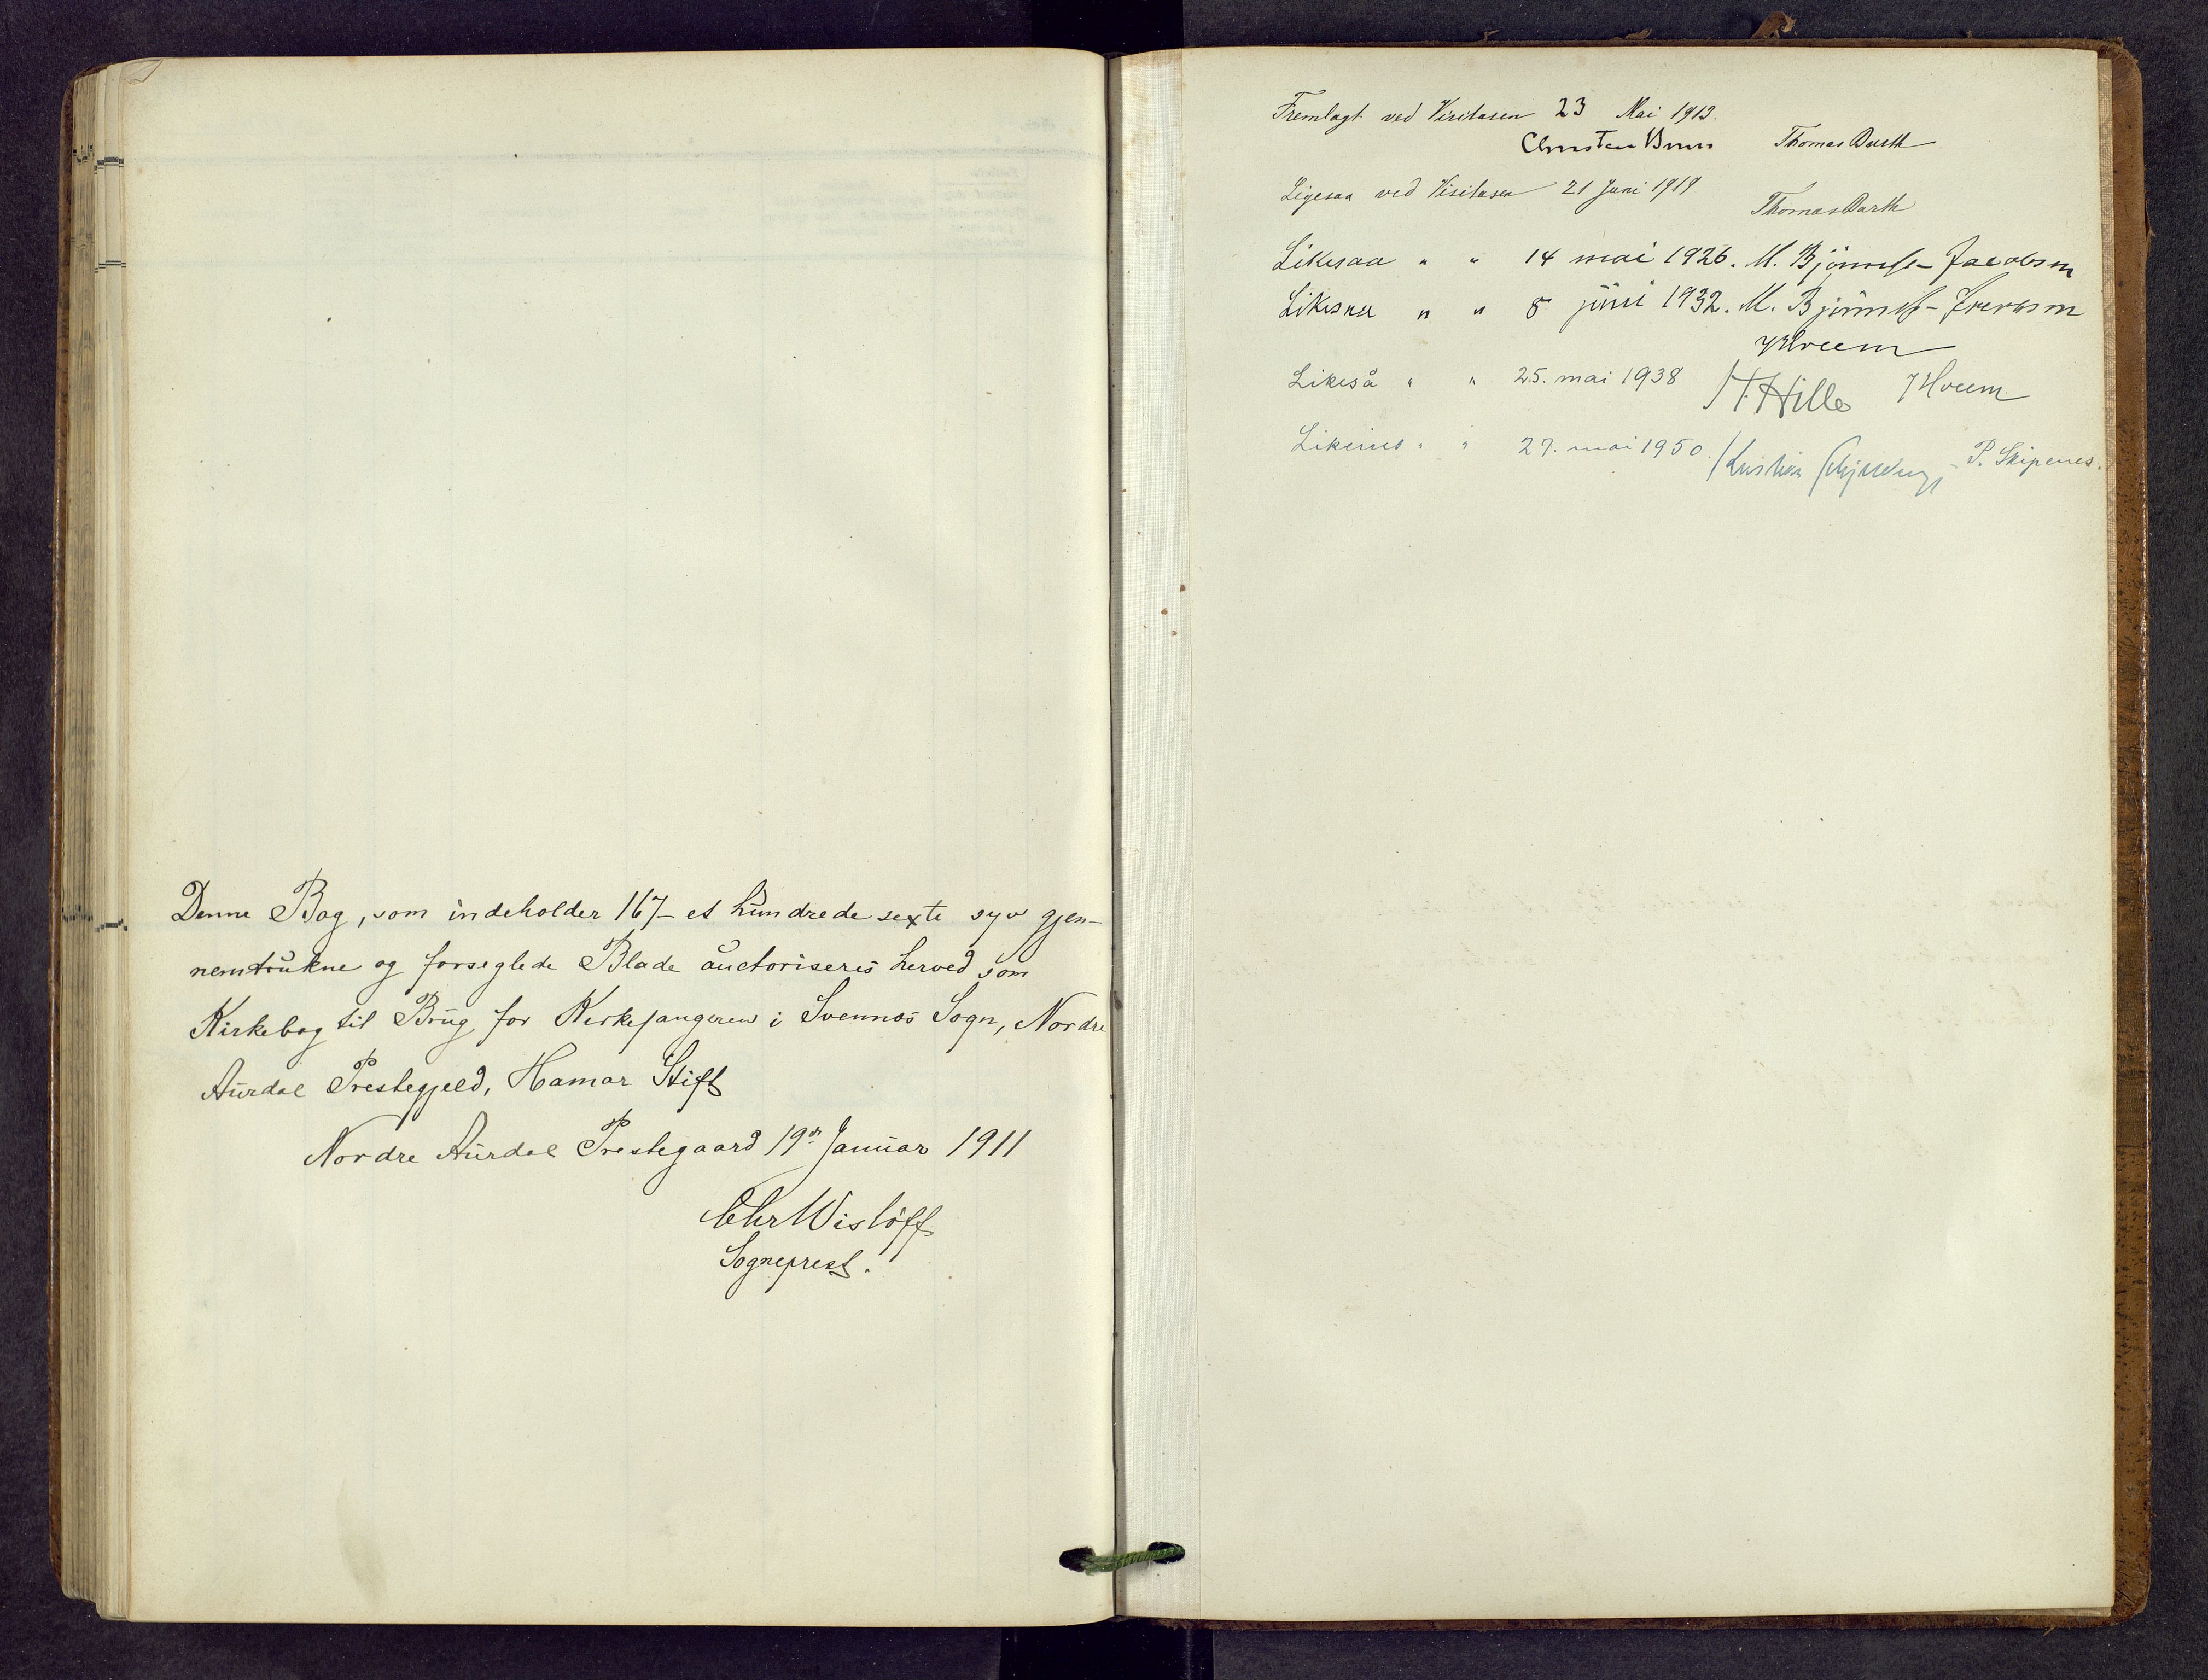 Denne Bog, som indeholder 167 - et hundrede sexti syv gjen-
nemtrukne og forseglede Blade auctoriseres herved som
Kirkebog til Brug for Kirkesangeren i Svennæs Sogn, Nordre
Aurdal Prestegjeld, Hamar Stift
Nordre Aurdal Prestegaard 19de Januar 1911
Chr Wislöff
Sogneprest.
Fremlagt ved Visitasen 23 Mai 1913.
Christen Brun Thomas Barth
Ligesaa ved Visitasen 21 Juni 1919
Thomas Barth
Likesaa " " 14 mai 1926. M. Bjönness-Jacobsen
Likesaa " " 8 juni 1932. M. Bjönness-Jacobsen
J Hovem
Likeså " " 25. mai 1938 H. Hille J Hovem
" " 27. mai 1950. Kristian Schjelderup, P. Skipenes.